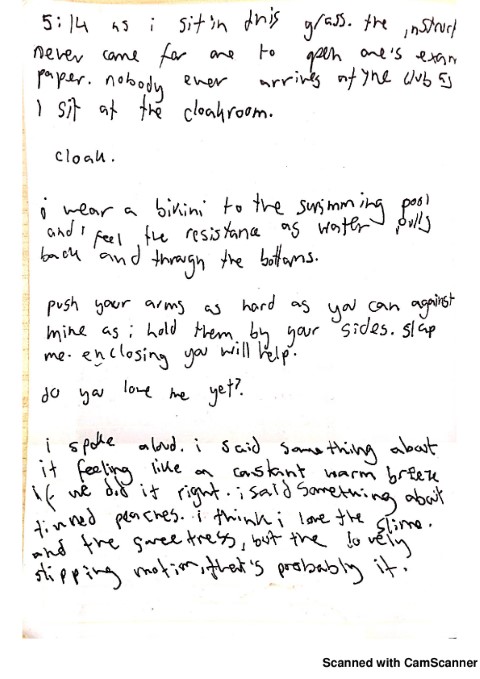 5:14 as i sit in this grass. the instruct
never came for one to open one's exam
paper. nobody ever arrives at the club as
i sit at the cloakroom.
cloak.
i wear a bikini to the swimming pool
and i feel the resistance as water pulls
back and through the bottoms.
push your arms as hard as you can against
mine as i hold them by your sides. slap
me. enclosing you will help.
do you love me yet?
i spoke aloud. i said something about
it feeling like a constant warm breeze
if we did it right. i said something about
tinned peaches. i think i love the slime.
and the sweetness, but the lovely
slipping motion, that's probably it.
Scanned with CamScanner